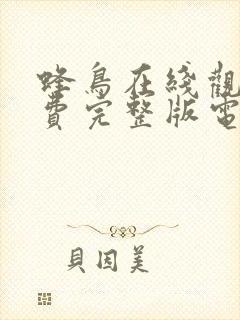 蜂鳥在綫觀
費完整版電
貝因美